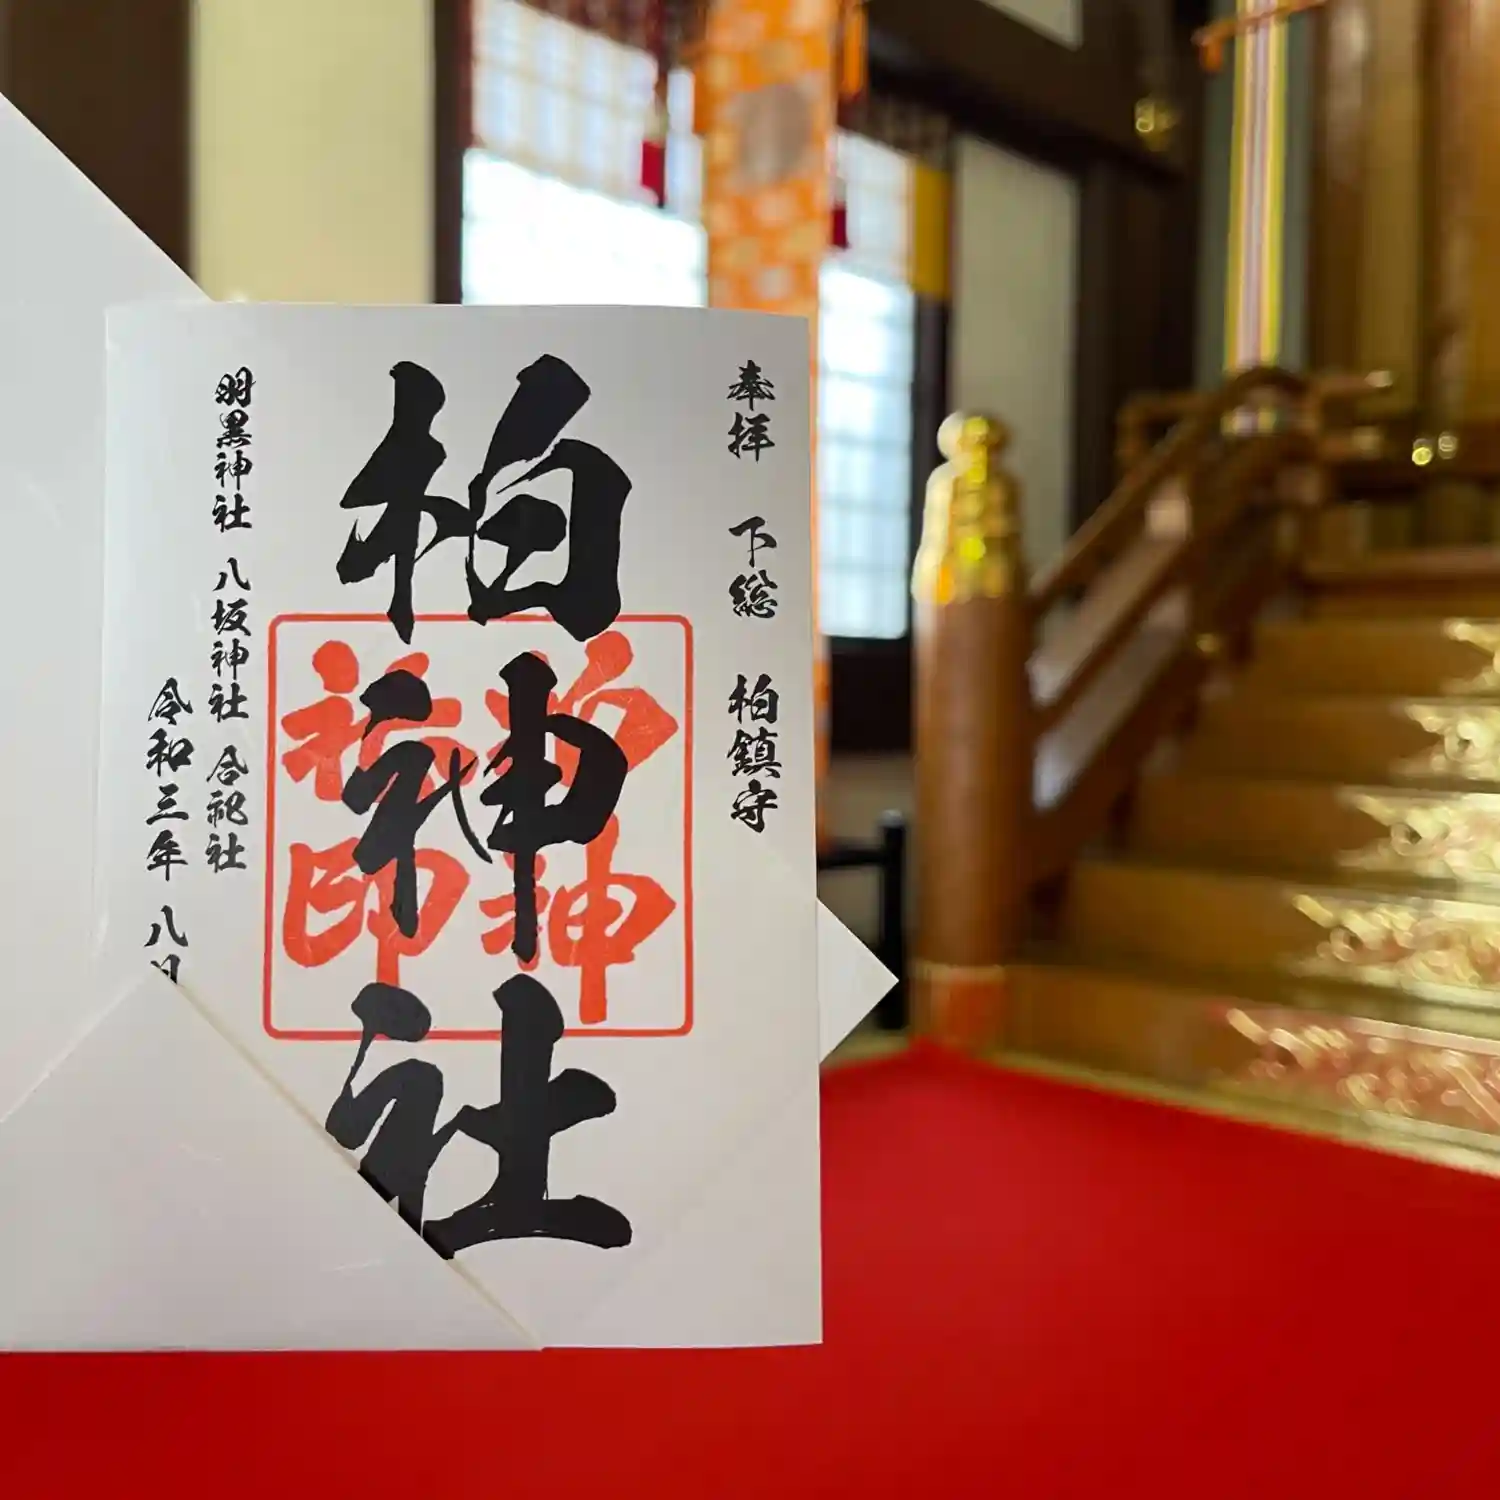 奉拝 下総 柏鎮守
柏神社
柏神
社印
羽黒神社 八坂神社 合祀社
令和三年 八月